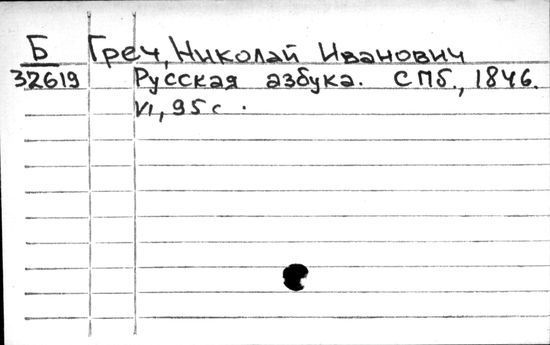 Б Греч, Николай Иванович
32619 Русская азбука. СПб., 1846.
VI, 95 с.